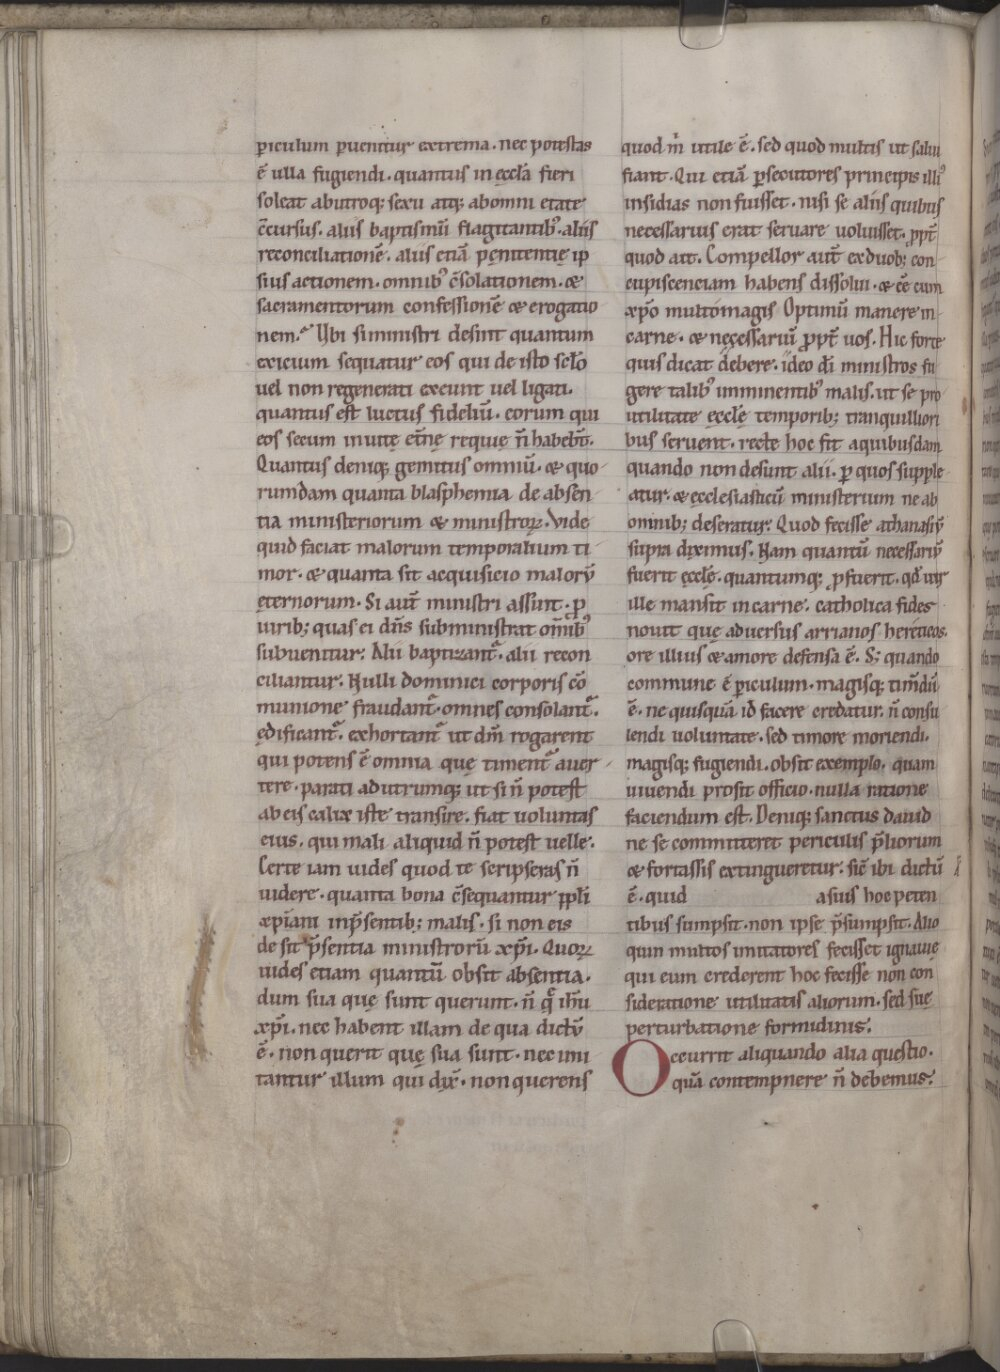 ꝑiculum ꝑuenitur extrema. nec potestas
ē ulla fugiendi. quantus in eccl̄a fieri
soleat abutroq; sexu atq; abomni etate
c̄cursus. aliis baptismū flagitantib᾽. aliis
reconciliationē. aliis etiā pęnitentię ip
sius actionem. omnib᾽ c̄solationem. &
sacramentorum confessionē & erogatio
nem. Ubi si ministri desint quantum
exicium sequatur eos qui de isto sc̄lo
uel non regenerati exeunt uel ligati.
quantus est luctus fideliū. eorum qui
eos secum in uitę et̄nę requię n̄ habeb̄t.
Quantus deniq; gemitus omniū. & quo
rumdam quanta blasphemia de absen
tia ministeriorum & ministroꝝ. Vide
quid faciat malorum temporalium ti
mor. & quanta sit acquisicio malorū
ęternorum. Si aut̄ ministri assunt. ꝓ
uirib; quas ei dn̄s subministrat om̄ib᾽
subuenitur. Alii baptizant᾽. alii recon
ciliantur. Nulli dominici corporis cō
munione fraudant᾽. omnes consolant᾽.
ędificant᾽. exhortant᾽ ut dm̄ rogarent
qui potens ē omnia quę timent᾽ auer
tere. parati adutrumq; ut si n̄ potest
ab eis calix iste transire. fiat uoluntas
eius. qui mali aliquid n̄ potest uelle.
Certe iam uides quod te scripseras n̄
uidere. quanta bona c̄sequantur ppl̄i
xp̄iani inp̄sentib; malis. si non eis
de sit p̄sentia ministrorū xp̄i. Quoꝝ
uides etiam quantū obsit absentia.
dum sua quę sunt querunt. n̄ q̄ ih̄u
xp̄i. nec habent illam de qua dictū
ē. non querit quę sua sunt. nec imi
tantur illum qui dix̄. non querens
quod m̄ utile ē. sed quod multis ut salui
fiant. Qui etiā ꝑsecutores principis illi᾽
insidias non fuisset. nisi se aliis quibus
necessarius erat seruare uoluisset. ꝓpt̄
quod ait. Compellor aut̄ exduob; con
cupiscenciam habens dissolui. & eē cum
xp̄o multomagis Optimū manere in
carne. & nęcessariū ꝓpt̄ uos. Hic forte
quis dicat debere. ideo dī ministros fu
gere talib᾽ imminentib᾽ malis. ut se pro
utilitate ęccl̄ę temporib; tranquilliori
bus seruent. recte hoc fit aquibusdam
quando non desunt alii. ꝑ quos supple
atur. & ęcclesiasticū ministerium ne ab
omnib; deseratur. Quod fecisse athanasiū
supra diximus. Nam quantū necessariū
fuerit ęccl̄ę. quantumq; ꝓfuerit. qd̄ uir
ille mansit in carne. catholica fides
nouit quę aduersus arrianos hereticos.
ore illius & amore defensa ē. S; quando
commune ē ꝑiculum. magisq; timdū
ē. ne quisquā id facere credatur. n̄ consu
lendi uoluntate. sed timore moriendi.
magisq; fugiendi. obsit exemplo. quam
uiuendi prosit officio. nulla ratione
faciendum est. Deniq; sanctus dauid
ne se committeret periculis p̄liorum
& fortassis extingueretur. sic̄ ibi dictū
ē. quid asuis hoc peten
tibus sumpsit. non ipse p̄sumpsit. Alio
quin multos imitatores fecisset ignauię
qui eum crederent hoc fecisse non con
sideratione utilitatis aliorum. sed suę
perturbatione formidinis.
Occurrit aliquando alia questio.
quā contempnere n̄ debemus.